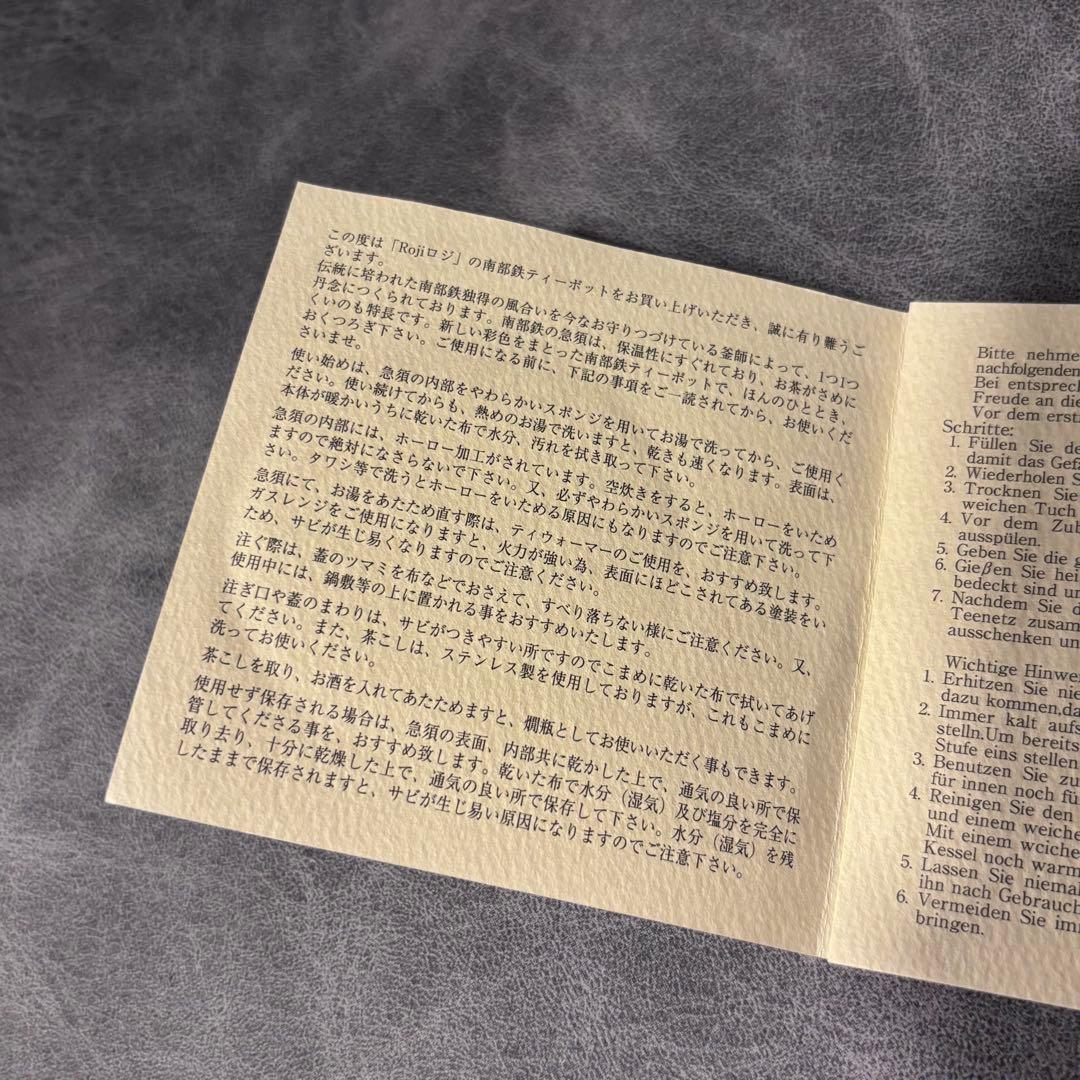 この度は「Rojiロジ」の南部鉄ティーポットをお買い上げいただき、誠に有り難うご
ざいます。
伝統に培われた南部鉄独得の風合いを今なお守りつづけている釜師によって、1つ1つ
丹念につくられております。南部鉄の急須は、保温性にすぐれており、お茶がさめに
くいのも特長です。新しい彩色をまとった南部鉄ティーポットで、ほんのひととき、
おくつろぎ下さい。ご使用になる前に、下記の事項をご一読されてから、お使いくだ
さいませ。
使い始めは、急須の内部をやわらかいスポンジを用いてお湯で洗ってから、ご使用く
ださい。使い続けてからも、熱めのお湯で洗いますと、乾きも速くなります。表面は、
本体が暖かいうちに乾いた布で水分、汚れを拭き取って下さい。
急須の内部には、ホーロー加工がされています。空炊きをすると、ホーローをいため
ますので絶対になさらないで下さい。又、必ずやわらかいスポンジを用いて洗って下
さい。タワシ等で洗うとホーローをいためる原因にもなりますのでご注意下さい。
急須にて、お湯をあたため直す際は、ティウォーマーのご使用を、おすすめ致します。
ガスレンジをご使用になりますと、火力が強い為、表面にほどこされてある塗装をい
ため、サビが生じ易くなりますのでご注意ください。
注ぐ際は、蓋のツマミを布などでおさえて、すべり落ちない様にご注意ください。又、
使用中には、鍋敷等の上に置かれる事をおすすめいたします。
注ぎ口や蓋のまわりは、サビがつきやすい所ですのでこまめに乾いた布で拭いてあげ
てください。また、茶こしは、ステンレス製を使用しておりますが、これもこまめに
洗ってお使いください。
茶こしを取り、お酒を入れてあたためますと、燗瓶としてお使いいただく事もできます。
使用せず保存される場合は、急須の表面、内部共に乾かした上で、通気の良い所で保
管してくださる事を、おすすめ致します。乾いた布で水分（湿気）及び塩分を完全に
取り去り、十分に乾燥した上で、通気の良い所で保存して下さい。水分（湿気）を残
したままで保存されますと、サビが生じ易い原因になりますのでご注意下さい。
Bitte nehme
nachfolgenden
Bei entsprec
Freude an die
Vor dem erst
Schritte:
1. Füllen Sie de
damit das Gef
2. Wiederholen S
3. Trocknen Sie
weichen Tuch
4. Vor dem Zub
ausspülen.
5. Geben Sie die g
6. Gieβen Sie hei
bedeckt sind un
7. Nachdem Sie d
Teenetz zusam
ausschenken un
Wichtige Hinwei
1. Erhitzen Sie nie
dazu kommen,da
2. Immer kalt aufs
stelln.Um bereits
Stufe eins stellen
3. Benutzen Sie zu
für innen noch fü
4. Reinigen Sie den
und einem weiche
Mit einem wciche
Kessel noch warm
5. Lassen Sie niemal
ihn nach Gebrauch
6. Vermeiden Sie imm
bringen.